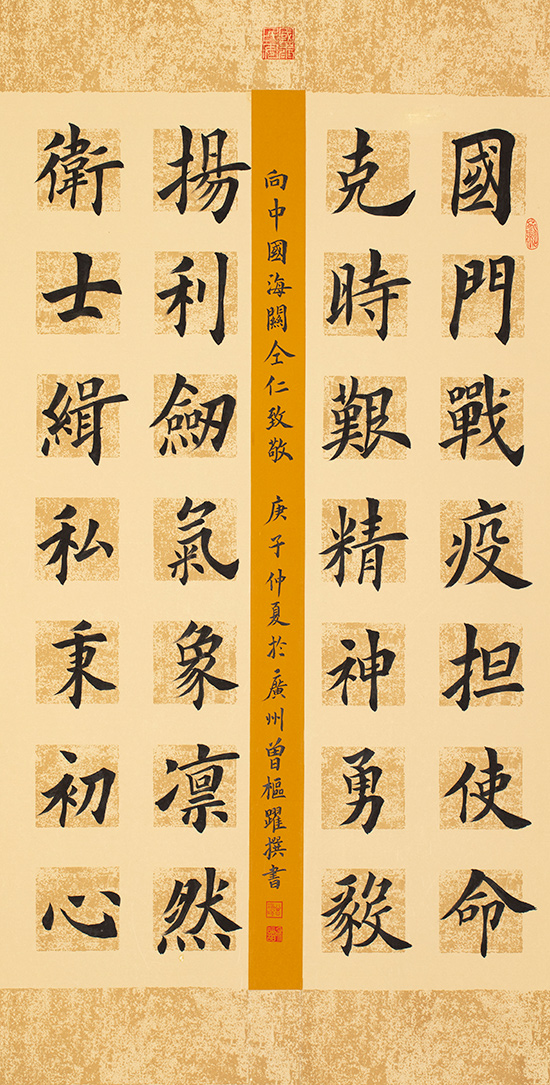 國門戰疫担使命
克時艱精神勇毅
衛士緝私秉初心
揚利劒氣象凛然
向中國海關仝仁致敬 庚子仲夏於廣州曾樞躍撰書